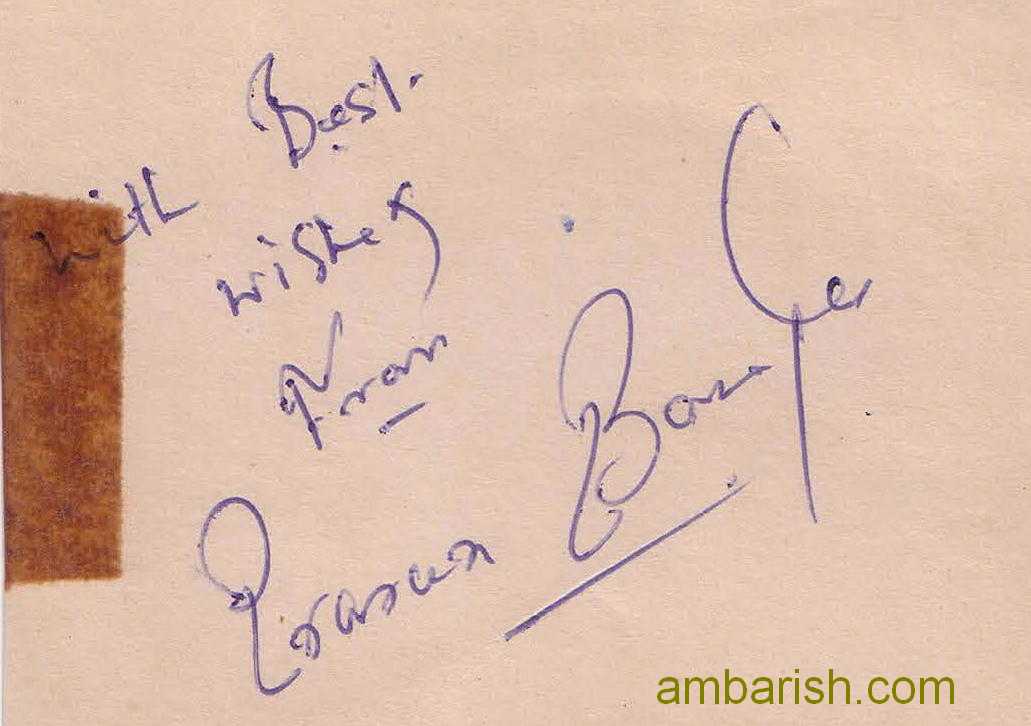 with Best
wishes
from
Prasun Banerjee
ambarish.com